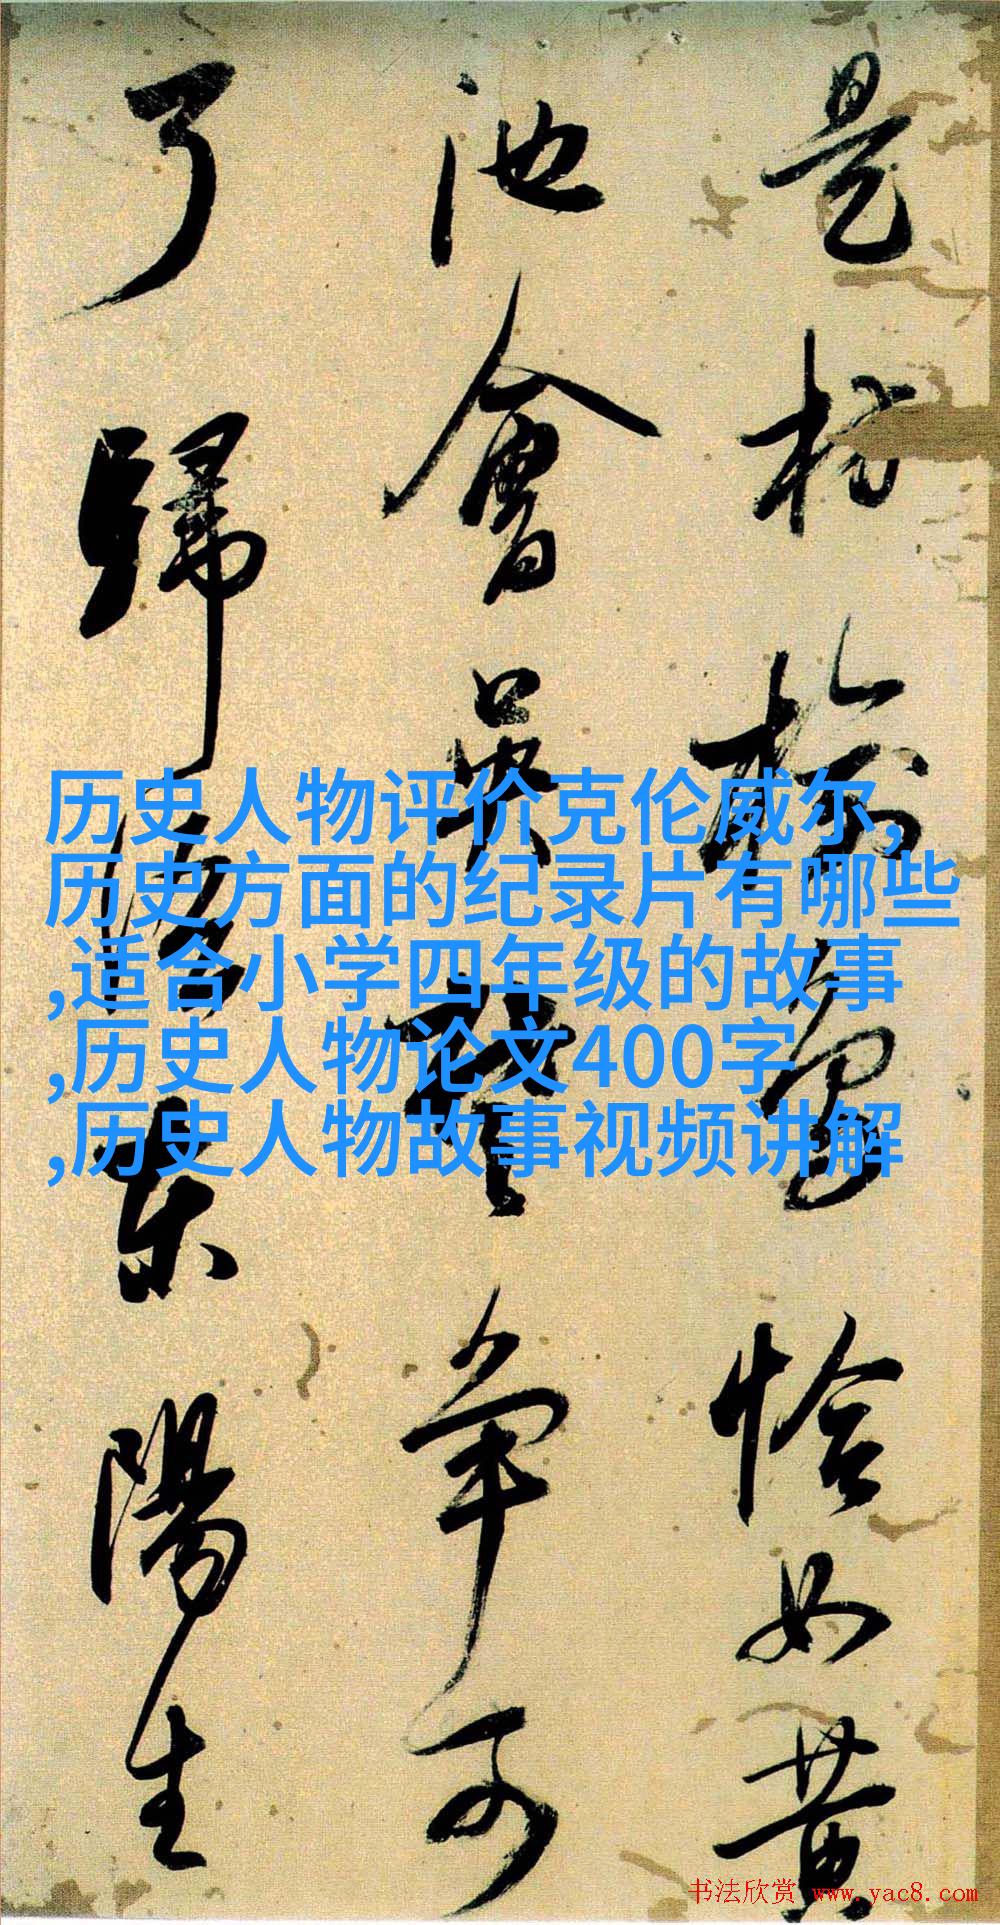 是枋榆恰如黄
池會吳爭可
了歸陽生
历史人物评价克伦威尔,
历史方面的纪录片有哪些
,适合小学四年级的故事
,历史人物论文400字
,历史人物故事视频讲解
书法欣赏 www.yac8.com